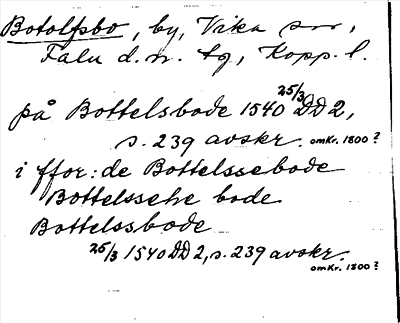 Botolfsbo, by, Vika sn,
Falu d.n. tg, Kopp. l.
på Bottelsbode 1540 25/3 DD 2,
s. 239 avskr. omkr. 1800?
i ffor: de Bottelssebode
Bottelssehe bode
Bottelssbode
25/3 1540 DD 2, s. 239 avskr.
omkr. 1800?